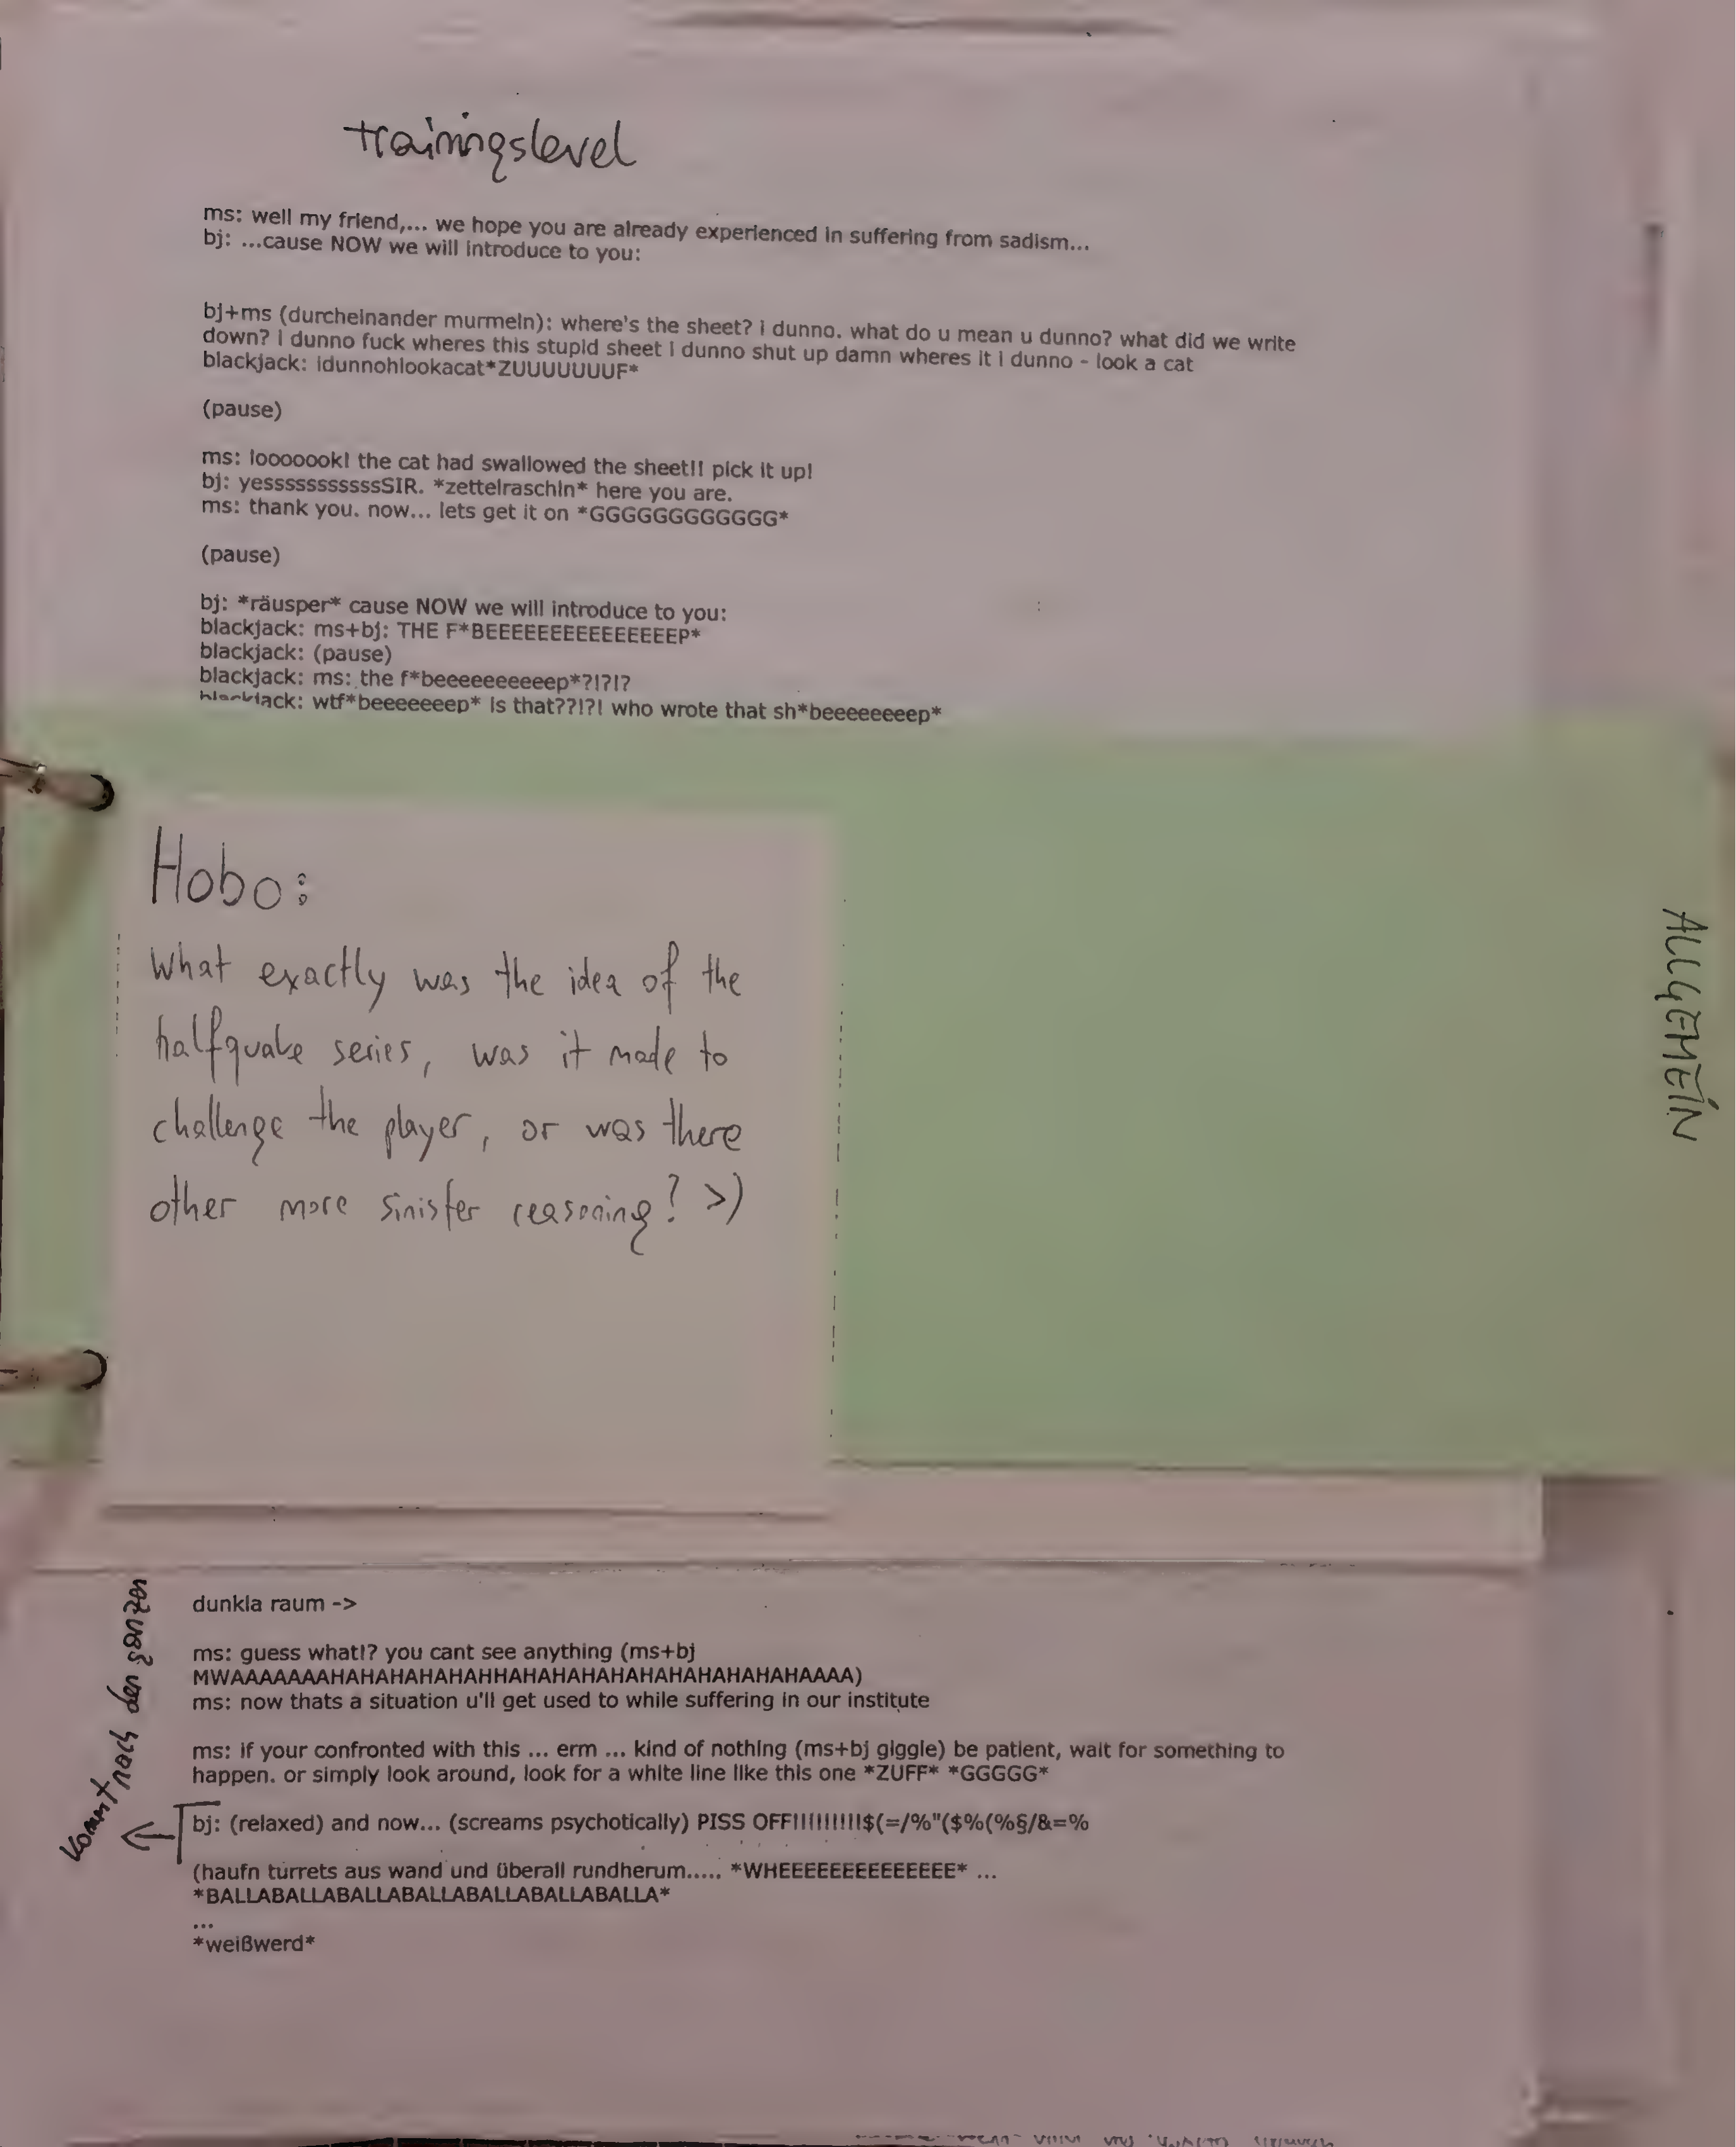 trainingslevel
ms: well my friend,... we hope you are already experienced in suffering from sadism...
bj: ...cause NOW we will introduce to you:
bj+ms (durcheinander murmeln): where's the sheet? i dunno. what do u mean u dunno? what did we write
down? i dunno fuck wheres this stupid sheet i dunno shut up damn wheres it i dunno - look a cat
blackjack: idunnohlookacat*ZUUUUUUUF*
(pause)
ms: looooook! the cat had swallowed the sheet!! pick it up!
bj: yesssssssssssSIR. *zettelraschln* here you are.
ms: thank you. now... lets get it on *GGGGGGGGGGGGG*
(pause)
bj: *räusper* cause NOW we will introduce to you:
blackjack: ms+bj: THE F*BEEEEEEEEEEEEEEEEP*
blackjack: (pause)
blackjack: ms: the f*beeeeeeeeeep*?!?!?
blackjack: wtf*beeeeeeep* is that??!?! who wrote that sh*beeeeeeeep*
Hobo:
What exactly was the idea of the
halfquake series, was it made to
challenge the player, or was there
other more sinister reasoning? >)
ALLGEMEIN
dunkla raum ->
ms: guess what!? you cant see anything (ms+bj
MWAAAAAAAHAHAHAHAHAHHAHAHAHAHAHAHAHAHAHAHAHAAAA)
ms: now thats a situation u'll get used to while suffering in our institute
ms: if your confronted with this ... erm ... kind of nothing (ms+bj giggle) be patient, wait for something to
happen. or simply look around, look for a white line like this one *ZUFF* *GGGGG*
kommt nach den ganzen
bj: (relaxed) and now... (screams psychotically) PISS OFF!!!!!!!!!!$(=/%"($%(%§/&=%
(haufn turrets aus wand und überall rundherum..... *WHEEEEEEEEEEEEEEE* ...
*BALLABALLABALLABALLABALLABALLABALLA*
...
*weißwerd*